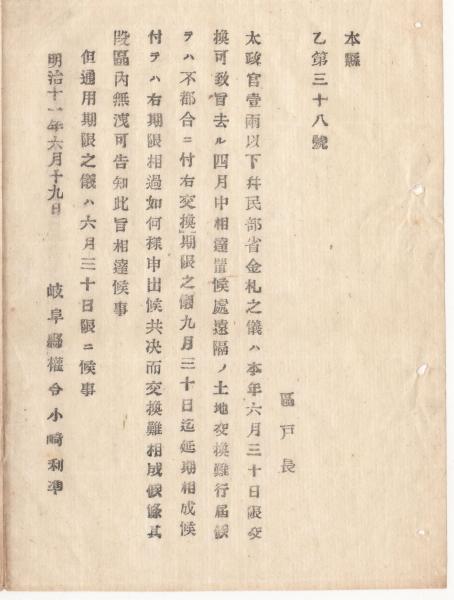 本縣
乙第三十八號
區戸長
太政官壹兩以下幷民部省金札之儀ハ本年六月三十日限交
換可致旨去ル四月中相達置候處遠隔ノ土地交換難行屆候
テハ不都合ニ付右交換期限之儀九月三十日迄延期相成候
付テハ右期限相過如何樣申出候共决而交換難相成候條其
段區內無洩可告知此旨相達候事
但通用期限之儀ハ六月三十日限ニ候事
明治十一年六月十九日　岐阜縣權令小崎利準